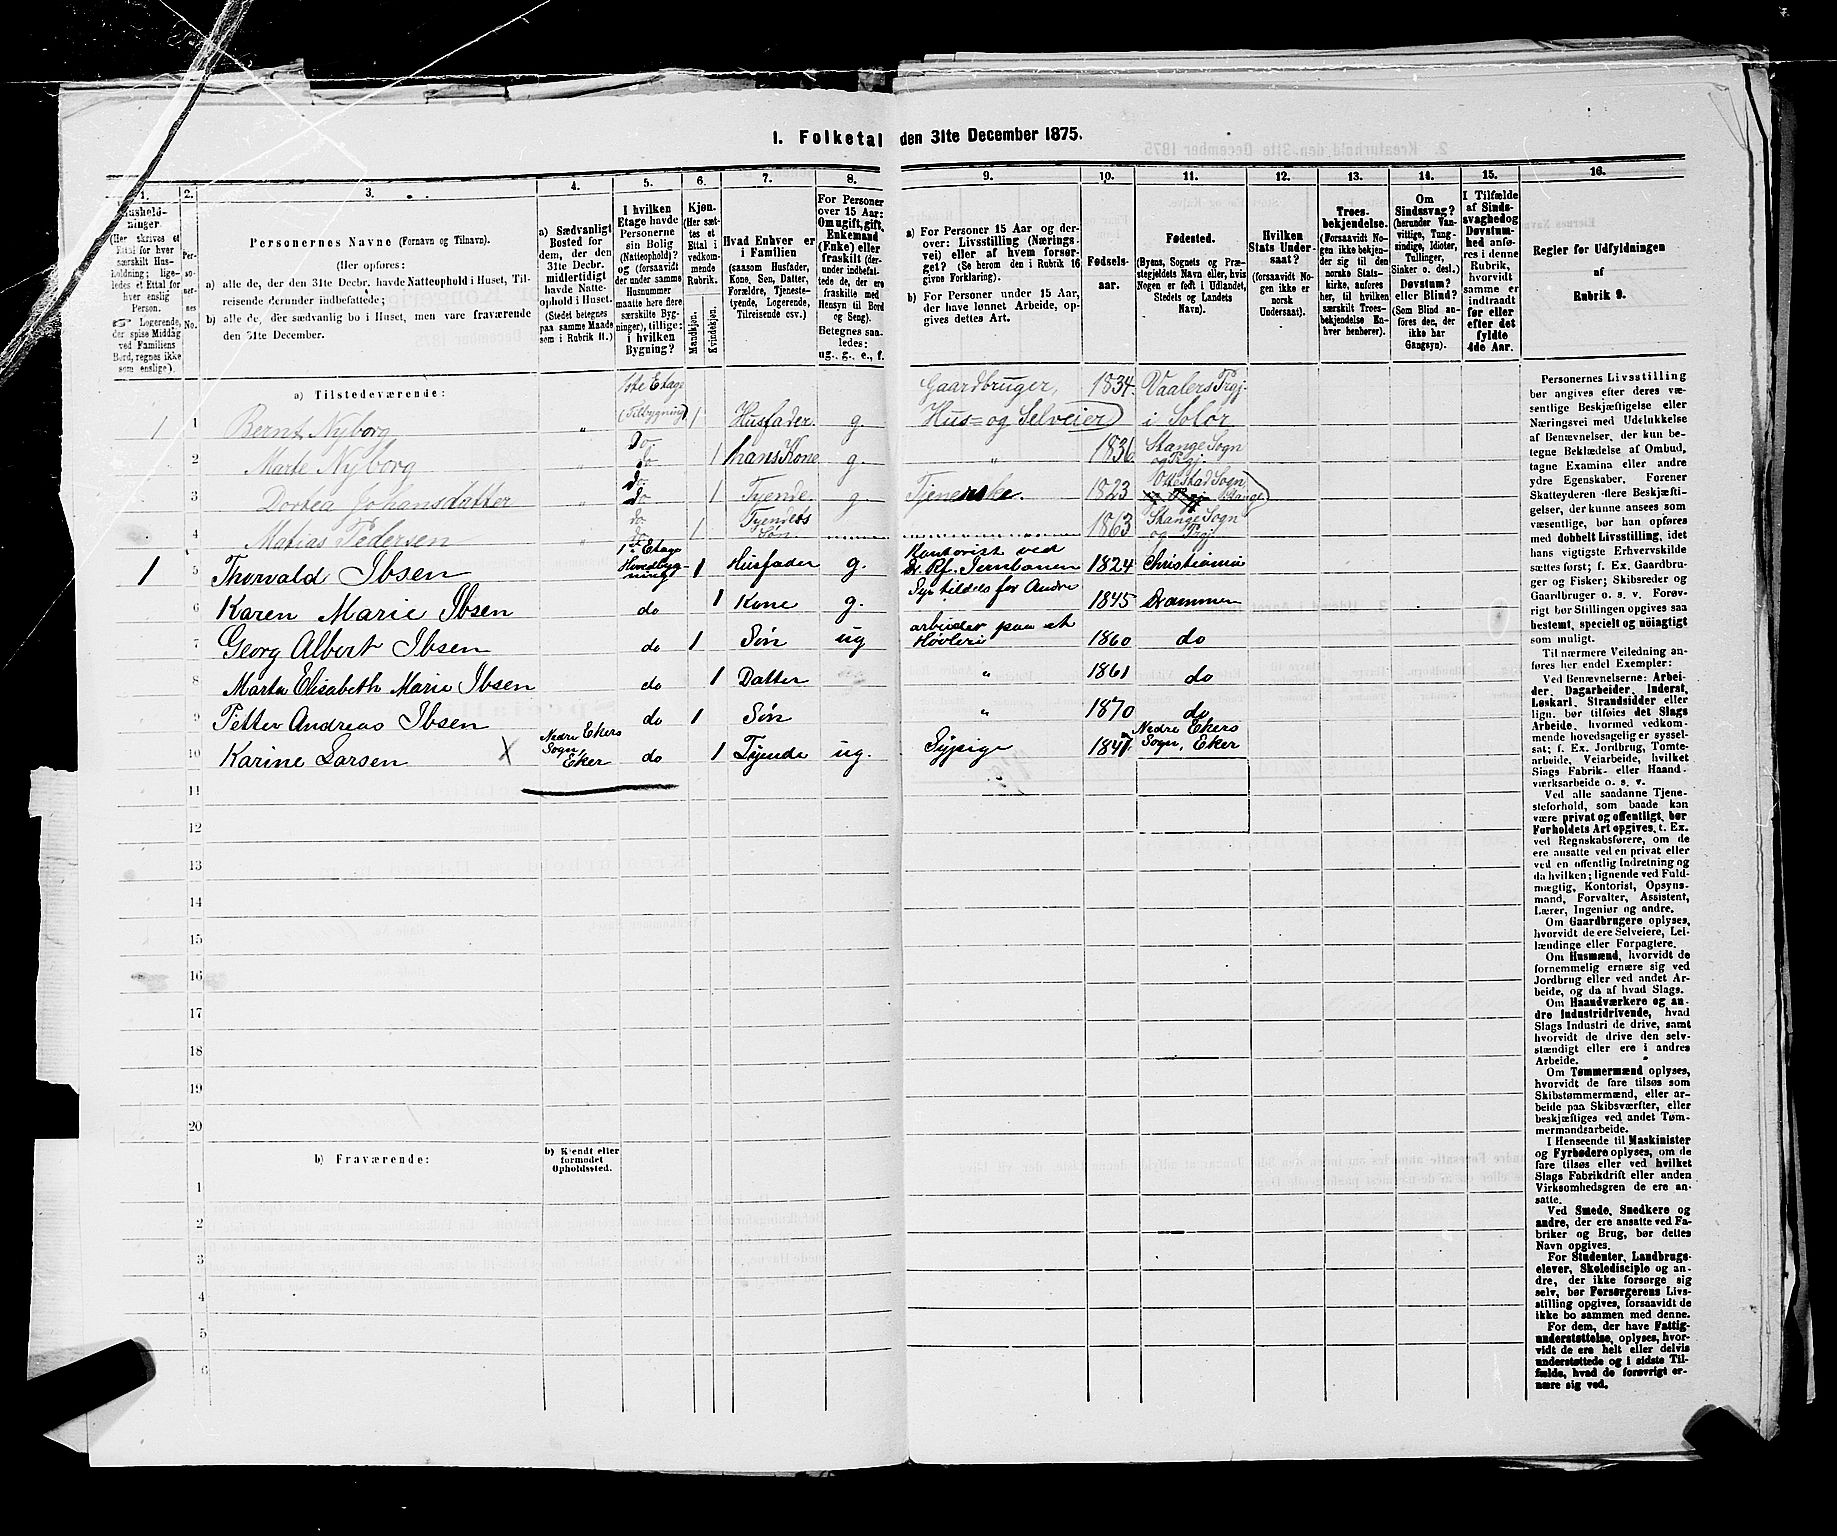 1. Folketal den 31te December 1875.
1. 2. 3. 4. 5. 6. 7. 8. 9. 10. 11. 12. 13. 14. 15. 16.
Husholdninger.
(Her skrives et
Ettal for hver
særskilt Husholdning;
ligeledes et Ettal for
hver enslig
Person.
Logerende,
der spise Middag
ved Familiens
Bord, regnes ikke
som enslige).
Personernes
No.
Personernes Navne (Fornavn og Tilnavn).
(Her opføres:
a) alle de, der den 31te Decbr. havde Natteophold i Huset, Tilreisende
derunder indbefattede;
b) alle de, der sædvanlig bo i Huset, men vare fraværende
den 31te December.
a) Sædvanligt
Bosted for
dem, der den
31te Decbr.
midlertidigt
havde Natteophold
i Huset.
(Stedet betegnes
paa samme Maade
som i Rubrik 11.)
I hvilken
Etage havde
Personerne
sin Bolig
(Natteophold)?
og (forsaavidt
der under samme
Husnummer
maatte høre flere
særskilte Bygninger),
tillige:
i hvilken
Bygning?
Kjøn.
(Her sættes
et
Ettal i
vedkommende
Rubrik.
Mandkjøn.
Kvindekjøn.
Hvad Enhver er
i Familien
(saasom Husfader,
Kone, Søn, Datter,
Forældre, Tjenestetyende,
Logerende,
Tilreisende csv.)
For Personer
over 15 Aar:
Om ugift, gift,
Enkemand
(Enke) eller
fraskilt (derunder
indbefattede
de, der ere
fraskilte med
Hensyn til Bord
og Seng).
Betegnes saaledes:
ug., g., e., f.
a) For Personer 15 Aar og derover:
Livsstilling (Næringsvei)
eller af hvem forsørget?
(Se herom den i Rubrik 16
givne Forklaring).
b) For Personer under 15 Aar,
der have lønnet Arbeide, opgives
dettes Art.
Fødselsaar.
Fødested.
(Byens, Sognets og Præstegjeldets
Navn eller, hvis
Nogen er født i Udlandet,
Stedets og Landets
Navn).
Hvilken
Stats Undersaat?
(forsaavidt Nogen
ikke er
norsk
Undersaat).
Troesbekjendelse.
(Forsaavidt Nogen
ikke bekjender
sig til den
norske Statskirke,
anføres
her, til hvilken
særskilt Troesbekjendelse
Enhver
henhører).
Om
Sindssvag?
(herunder Vanvittige,
Tungsindige,
Idioter,
Tullinger,
Sinker o. desl.)
Døvstum?
eller Blind?
(Som Blind anføres
den, der
ikke har
Gangsyn).
I Tilfælde
af Sindssvaghed
og
Døvstumhed
anføres
i denne
Rubrik,
hvorvidt
samme er
indtraadt
før eller
efter det
fyldte
4de Aar.
Regler for Udfyldningen
af
Rubrik 9.
a) Tilstedeværende:
1 1 Bernt Nyborg " 1ste Etage (Tilbygning) 1 Husfader. g. Gaardbruger, Hus= og Selveier 1834. Vaalers Prgj. i Solør
2 Marte Nyborg " Do do 1 hans Kone g. " 1836. Stange Sogn og Prgj.
3 Dortea Johansdatter " Do do 1 Tyende. g. Tjenerske. 1823 Ottestad Sogn
4 Matias Pedersen " do do 1 Tyendes Søn. 1863 Stange Sogn og Prgj.
1 5 Thorvald Ibsen 1ste Etage Hovedbygning 1 Husfader g. Kontorist ved Jernbanen 1824 Christiania
6 Karen Marie Ibsen do 1 Kone g. Syr tildels for Andre 1845 Drammen
7 Georg Albert Ibsen do 1 Søn ug arbeider paa et Høvleri 1860 do
8 Marta Elisabeth Marie Ibsen do 1 Datter " 1861 do
9 Petter Andreas Ibsen do 1 Søn " 1870 do
10 Karine Larsen X Nedre Ekers Sogn Eker do 1 Tyende ug. Sypige Nedre Ekers Sogn, Eker
11
12
13
14
15
16
17
18
19
20
b) Fraværende:
b) Kjendt eller
formodet
Opholdssted.
1
2
3
4
5
6
Personernes Livsstilling
bør angives efter deres væsentlige
Beskjæftigelse eller
Næringsvei med Udelukkelse
af Benævnelser, der kun betegne
Beklædelse af Ombud,
tagne Examina eller andre
ydre Egenskaber. Forener
Skatteyderen flere Beskjæftigelser,
der kunne ansees som
væsentlige, bør han opføres
med dobbelt Livsstilling, idet
hans vigtigste Erhvervskilde
sættes først; f. Ex. Gaardbruger
og Fisker; Skibsreder og
Gaardbruger o. s. v. Forøvrigt
bør Stillingen opgives saa
bestemt, specielt og nøiagtigt
som muligt.
Til nærmere Veiledning anføres
her endel Exempler:
Ved Benævnelserne: Arbeider,
Dagarbeider, Inderst,
Løskarl, Strandsidder eller
lign. bør tilføies det Slags
Arbeide, hvormed vedkommende
hovedsagelig er sysselsat;
f. Ex. Jordbrug, Tomtearbeide,
Veiarbeide, hvilket
Slags Fabrik- eller Haandværksarbeide
o. s. v.
Ved alle saadanne Tjenesteforhold,
som baade kan
være privat og offentligt, bør
Forholdets Art opgives, t. Ex.
ved Regnskabsførere, om de
ere ansatte ved en privat eller
ved en offentlig Indretning og
da hvilken; lignende ved Fuldmægtig,
Kontorist, Opsynsmand,
Forvalter, Assistent,
Lærer, Ingeniør og andre.
Om Gaardbrugere oplyses,
hvorvidt de ere Selveiere, Leilændinge
eller Forpagtere.
Om Husmænd, hvorvidt de
fornemmelig ernære sig ved
Jordbrug eller ved andet Arbeide,
og da af hvad Slags.
Om Haandværkere og andre
Industridrivende, hvad
Slags Industri de drive, samt
hvorvidt de drive den selvstændigt
eller ere i andres
Arbeide.
Om Tømmermænd oplyses,
hvorvidt de fare tilsøs som
Skibstømmermænd, eller arbeide
paa Skibsværfter, eller
beskjæftiges ved andet Tømmermandsarbeide.
I Henseende til Maskinister
og Fyrbødere oplyses, om de
fare tilsøs eller ved hvilket
Slags Fabrikdrift eller anden
Virksomhedsgren de ere ansatte.
Ved Smede, Snedkere og
andre, der ere ansatte ved Fabriker
og Brug, bør dettes
Navn opgives.
For Studenter, Landbrugselever,
Skoledisciple og andre,
der ikke forsørge sig
selv, bør Forsørgerens Livsstilling
opgives, forsaavidt de
ikke bo sammen med denne.
For dem, der have Fattigunderstøttelse,
oplyses, hvorvidt
de ere helt eller delvis
understøttede og i sidste Tilfælde,
hvad de forøvrigt ernære
sig ved.